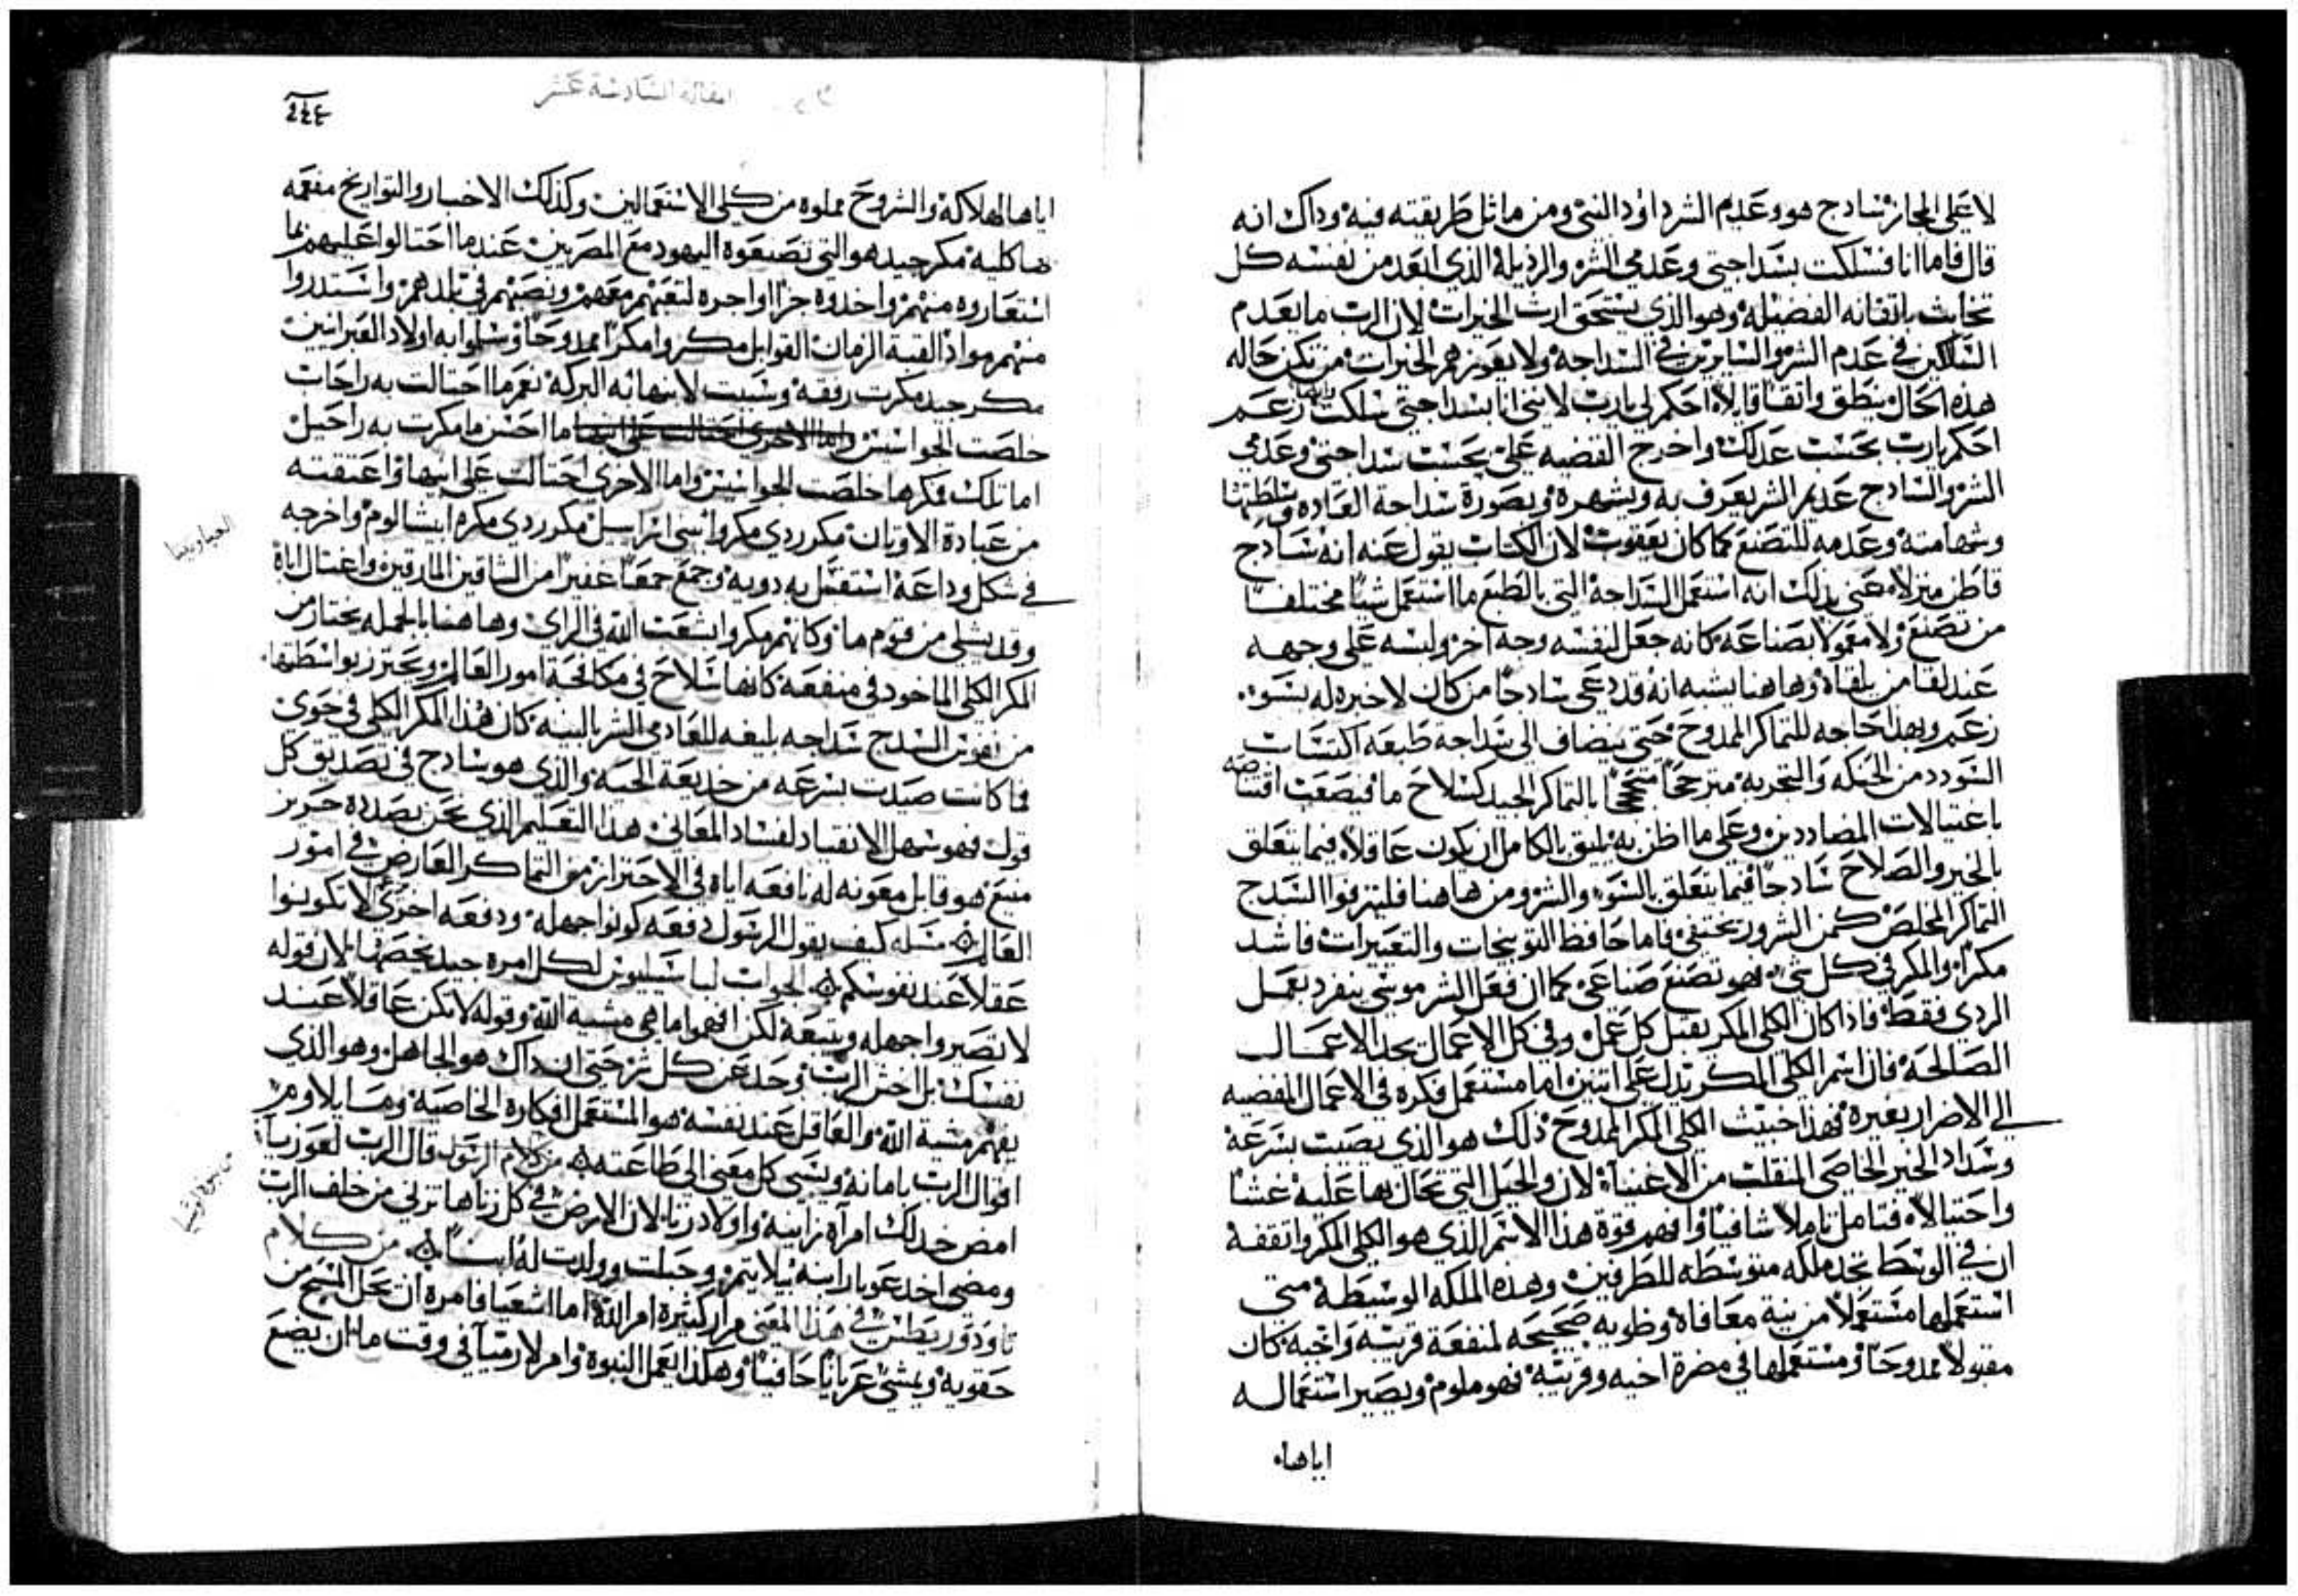 لا على المجاز سادج هو وعديم الشر داوود النبي ومن ماثل طريقته فيه وداك انه
قال فاما انا فسلكت بسداجتي وعدمي الشر والرديلة الذي ابعد من نفسه كل
تخابث باتقانه الفضيله وهو الذي يستحق ارث الخيرات لان الرب ما يعدم
السالكين في عدم الشر والسايرين في السداجة ولا يعوزهم الخيرات من تكن حاله
هذه الحال ينطق واتقا قايلا احكم لي يارب لانني انا بسداجتي سلكت زعم
احكم يارب بحسب عدلك واخرج القضيه على بحسب سداجتي وعدمي
الشر والسادج عديم الشر يعرف به ويشهره وبصورة سداحة العاده
وشهامته وعدمه للتصنع كما كان يعقوب لان الكتاب يقول عنه انه سادج
قاطن منزلا معنى بدلك انه استعمل السداجة التي بالطبع ما استعمل شيا مختلفا
من تصنع ولا معمولا بصناعة كانه جعل لنفسه وجه اخر ولبسه على وجهه
عند لقا من يلقاه وهاهنا يشبه انه قد دعى سادجا من كان لا خبره له بسوه
زعم وبهذا حاجه للتماكر الممدوح حتى يضاف الى سداجة طبعه اكتساب
التودد من الحنكه والتجربه مترجحا بالتماكر الجيد كسلاح ما فيصعب اقتناصه
باغتيالات المضاددين وعلى ما اظن به يليق بالكامل ان يكون عاقلا فيما يتعلق
بالخير والصلاح سادجا فيما يتعلق بالسوء والشر ومن هاهنا فليترفوا السدج
التماكر المخلص كمن الشرور تختفي فاما حافظ التوبيخات والتعييرات فاشد
مكرا والمكر في كل شي فهو تصنع صناعي كما ان فعل الشر موسى ينفرد بعمل
الردي فقط فادا كان الكلي المكر يقبل كل عمل وفي كل الاعمال تجد الاعمال
الصالحة فان اسم الكلي المكر يدل على اتنين اما مستعمل فكره في الاعمال المفضيه
الى الاضرار بغيره فهذا خبيث الكلي المكر الممدوح ذلك هو الذي يصيب بسرعة
وسداد الخير الخاصي المنفلت من الاغتيالة لان والحيل التي تحال بها عليه غشا
واحتيالا فتامل تاملا شافيا وافهم قوة هذا الاسم الذي هو الكلي المكر واتقفه
ان في الوسط تجد ملكه متوسطه للطرفين وهذه الملكه الوسيطة متى
استعملها مستعملا من نية معافاة وطويه صحيحه لمنفعة قريبه واخيه كان
مقبولا ممدوحا ومستعملها في مضرة اخيه وقريبه فهو ملوم ويصير استعماله
اياها
المقالة السادسة عشر
٢٤٤
اياها لهلاكه والشروح مملوه من كلي الاستعمالين وكذلك الاخبار والتواريخ مفعمه
ها كلية مكر جيد هو التي تصنعوه اليهود مع المصريين عندما احتالوا عليهم بما
استعاروه منهم واخدوه جزا او اجره لتعبهم معهم ونصبهم في بلدهم واستدروا
منهم مواد القبة الزمان القوابل مكروا مكرا ممدوحا وسلوا به اولاد العبرانيين
مكر جيد مكرت رفقه وسببت لابنها نه البركة نعم ما احتالت به راحاب
خلصت الجواسيس واما الاخرى احتالت على ابيها ما احسن ما مكرت به راحيل
اما تلك فكرها خلصت الجواسيس واما الاخرى احتالت على ابيها واعتقته
من عبادة الاوتان مكر ردي مكروا بني اسراييل مكر ردي مكره ابيشالوم واخرجه
في شكل وداعة استقبل به دويه وجمع جمعا غفيرا من الشاقين المارقين واغتال اباه
وقد يسلى من قوم ما وكانهم مكروا بشعب الله في الراي وهاهنا بالجمله يختار من
المكر الكلي الماخود في منفعة كانها سلاح في مكافحة امور العالم ويحترز بواسطتها
من نفوس السدج سداجه بليغه للعادمي الشر بالبنيه كان هذا المكر الكلي في حوى
فما كانت صيدت بسرعه من خديعة الحيه والذي هو سادج في تصديق كل
قول فهو سهل الانقياد لفساد المعاني هذا التعليم الذي نحن بصدده حريز
منيع هو قابل معونه له نافعه اياه في الاحتراز من التماكر العارض في امور
العالم مسله كيف يقول الرسول دفعه كونوا جهله ودفعه اخرى لا تكونوا
عقلا عند نفوسكم الجواب لباسيليوس لكل امره جيد يخصها لان قوله
لا تصيروا جهله ويتبعه لكن افهموا ما هي مشية الله وقوله لا تكن عاقلا عند
نفسك بل اخش الرب وحد عن كل شر حتى ان داك هو الجاهل وهو الذي
يفهم مشية الله والعاقل عند نفسه هو المستعمل افكاره الخاصية وما يلاوم
اقوال الرب بامانة وينسى كل معنى الى طاعته من كلام الرسول قال الرب لهوزيا
امض خد لك امرأة زانيه واولاد زنا لان الارض في كل زناها تزني من خلف الرب
ومضى اخد عوبار ابنه بيلايتمر وحبلت وولدت له ابنا من كلام
تاودوريطس في هذا المعنى مرار كثيرة امر الله اما اشعيا فامره ان يحل المسح من
حقويه ويمشي عريانا حافيا وهكذا يعمل النبوة وامر لارميا في وقت ما ان يضع